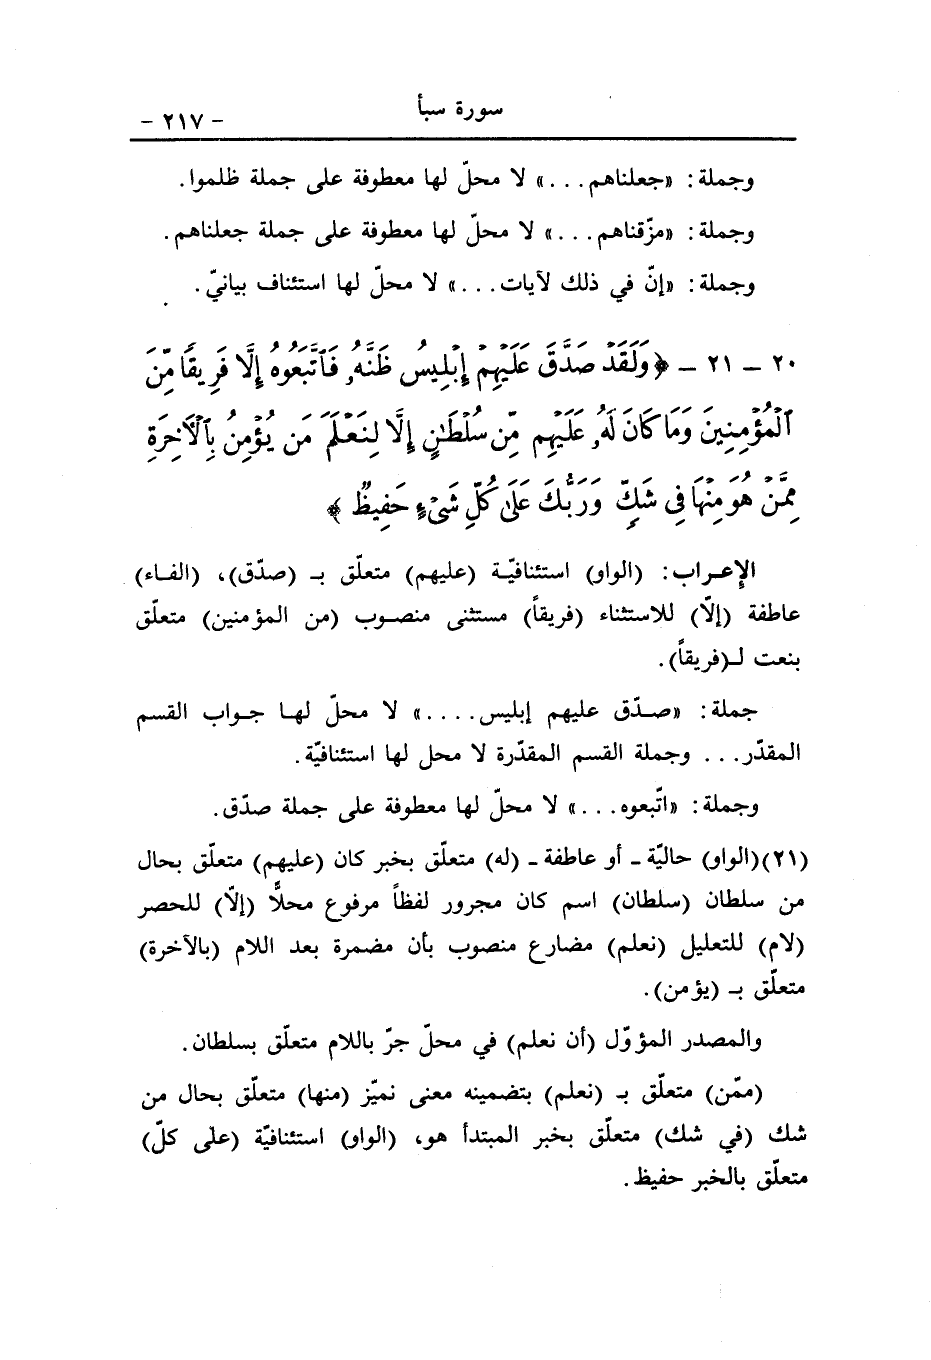 سورة سبأ
- ٢١٧ -
وجملة: «جعلناهم...» لا محلّ لها معطوفة على جملة ظلموا.
وجملة: «مزّقناهم...» لا محلّ لها معطوفة على جملة جعلناهم.
وجملة: «إنّ في ذلك لآيات...» لا محلّ لها استئناف بيانيّ.
٢٠ - ٢١ - ﴿وَلَقَدْ صَدَّقَ عَلَيْهِمْ إِبْلِيسُ ظَنَّهُۥ فَٱتَّبَعُوهُ إِلَّا فَرِيقًا مِّنَ
ٱلْمُؤْمِنِينَ وَمَا كَانَ لَهُۥ عَلَيْهِم مِّن سُلْطَٰنٍ إِلَّا لِنَعْلَمَ مَن يُؤْمِنُ بِٱلْآخِرَةِ
مِمَّنْ هُوَ مِنْهَا فِى شَكٍّ وَرَبُّكَ عَلَىٰ كُلِّ شَىْءٍ حَفِيظٌ﴾
الإعراب: (الواو) استئنافيّة (عليهم) متعلّق بـ (صدّق)، (الفاء)
عاطفة (إلّا) للاستثناء (فريقاً) مستثنى منصوب (من المؤمنين) متعلّق
بنعت لـ(فريقاً).
جملة: «صدّق عليهم إبليس....» لا محلّ لها جواب القسم
المقدّر... وجملة القسم المقدّرة لا محل لها استئنافيّة.
وجملة: «اتّبعوه...» لا محلّ لها معطوفة على جملة صدّق.
(٢١)(الواو) حاليّة - أو عاطفة - (له) متعلّق بخبر كان (عليهم) متعلّق بحال
من سلطان (سلطان) اسم كان مجرور لفظاً مرفوع محلًّا (إلّا) للحصر
(لام) للتعليل (نعلم) مضارع منصوب بأن مضمرة بعد اللام (بالآخرة)
متعلّق بـ (يؤمن).
والمصدر المؤوّل (أن نعلم) في محلّ جرّ باللام متعلّق بسلطان.
(ممّن) متعلّق بـ (نعلم) بتضمينه معنى نميّز (منها) متعلّق بحال من
شك (في شك) متعلّق بخبر المبتدأ هو، (الواو) استئنافيّة (على كلّ)
متعلّق بالخبر حفيظ.